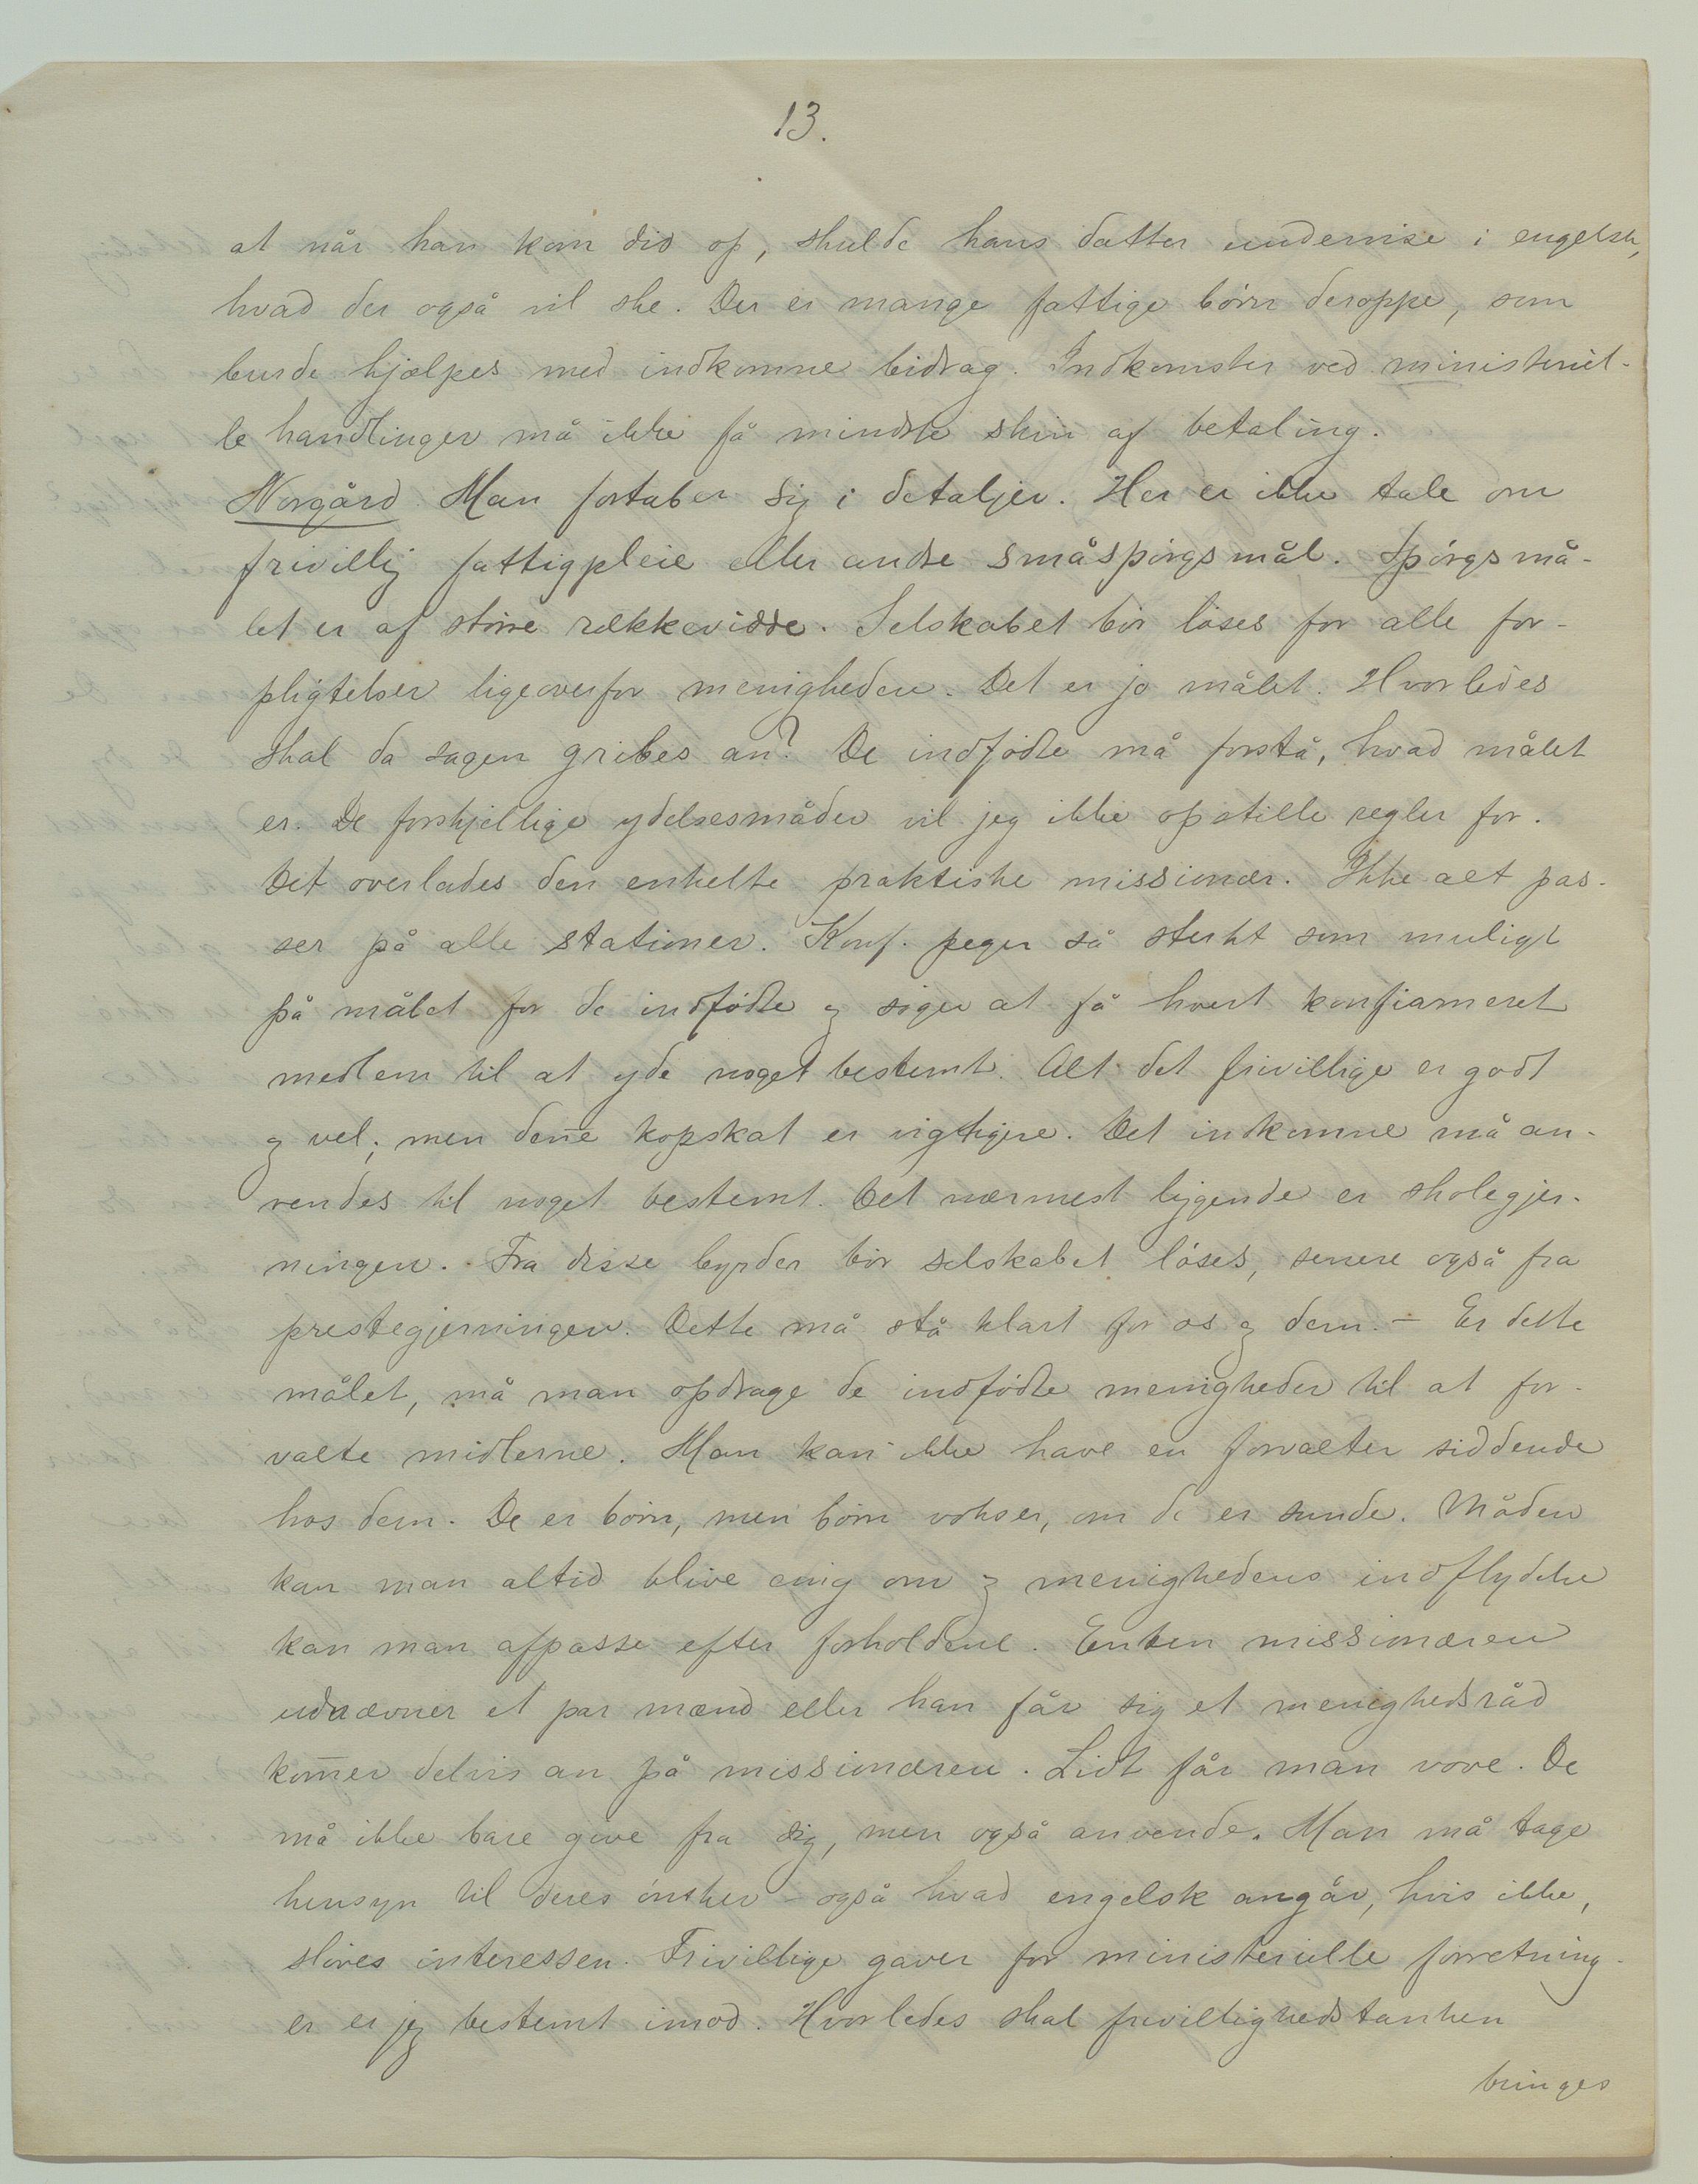 13.
at når han kom did op, skulde hans datter undervise i engelsk,
hvad der også vil ske. Der er mange fattige börn deroppe, som
burde hjælpes med indkomne bidrag. Indkomster ved ministeriel-
le handlinger må ikke få mindste skin af betaling.
Norgård Man fortaber sig i detaljer. Her er ikke tale om
frivillig fattigpleie eller andre småspörgsmål. Spörgsmå-
let er af större rækkevidde. Selskabet bör löses for alle for-
pligtelser ligeoverfor menigheden. Det er jo målet. Hvorledes
skal da sagen gribes an? De indfödte må forstå, hvad målet
er. De forskjellige ydelsesmåder vil jeg ikke opstille regler for.
Det overlades den enkelte praktiske missionær. Ikke alt pas-
ser på alle stationer. Konf. peger så sterkt som muligt
på målet for de indfödte og siger at få hvert konfirmeret
medlem til at yde noget bestemt. Alt det frivillige er godt
og vel; men denne kopskat er vigtigere. Det indkomne må an-
vendes til noget bestemt. Det nærmest liggende er skolegjer-
ningen. Fra disse byrder bör selskabet löses, senere også fra
prestegjerningen. Dette må stå klart for os og dem. – Er dette
målet, må man opdrage de indfödte menigheder til at for-
valte midlerne. Man kan ikke have en forvalter siddende
hos dem. De er börn, men börn vokser, om de er sunde. Måden
kan man altid blive enig om og menighedens indflydelse
kan man afpasse efter forholdene. Enten missionæren
udnævner et par mænd eller han får sig et menighedsråd
kom̅er delvis an på missionæren. Lidt får man vove. De
må ikke bare give fra sig, men også anvende. Man må tage
hensyn til deres önsker – også hvad engelsk angår, hvis ikke,
slöves interessen. Frivillige gaver for ministerielle forretning-
er er jeg bestemt imod. Hvorledes skal frivillighedstanken
bringes